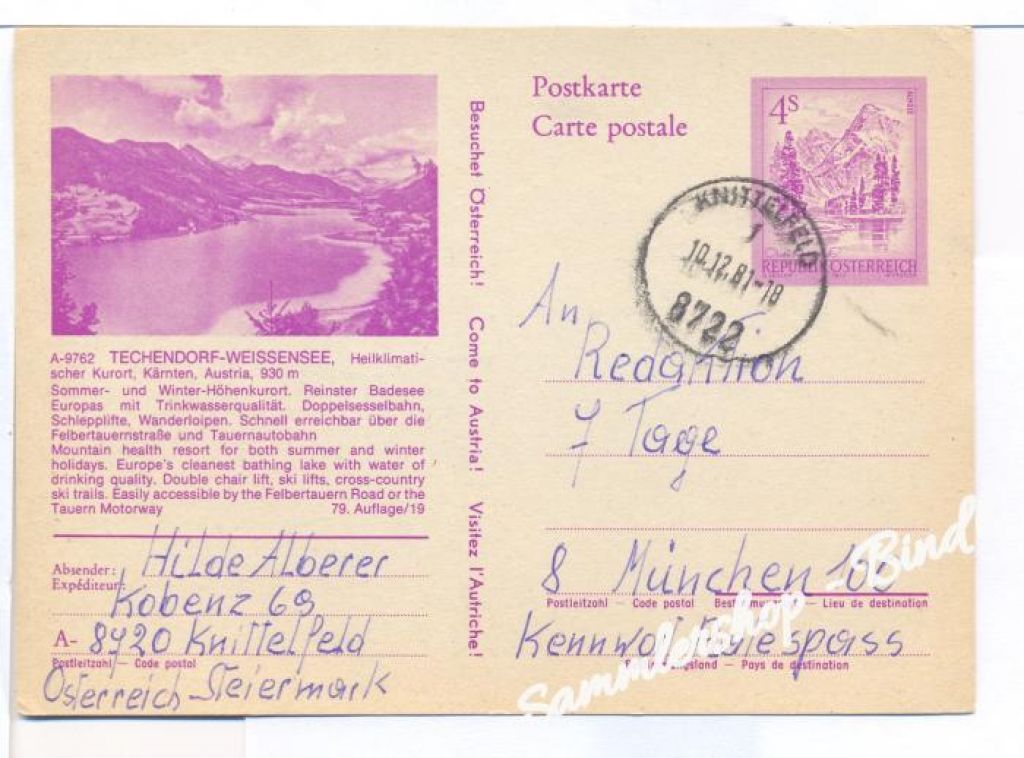 Postkarte
Carte postale
4S
ALMSEE
REPUBLIK ÖSTERREICH
KNITTELFELD
1
10.12.81-18
8722
Besuchet Österreich! Come to Austria! Visitez l'Autriche!
A-9762 TECHENDORF-WEISSENSEE, Heilklimati-
scher Kurort, Kärnten, Austria, 930 m
Sommer- und Winter-Höhenkurort. Reinster Badesee
Europas mit Trinkwasserqualität. Doppelsesselbahn,
Schlepplifte, Wanderloipen. Schnell erreichbar über die
Felbertauernstraße und Tauernautobahn
Mountain health resort for both summer and winter
holidays. Europe's cleanest bathing lake with water of
drinking quality. Double chair lift, ski lifts, cross-country
ski trails. Easily accessible by the Felbertauern Road or the
Tauern Motorway 79. Auflage/19
Absender: Hilde Alberer
Expéditeur: Kobenz 69
A- 8720 Knittelfeld
Postleitzahl — Code postal
Österreich Steiermark
An
Redaktion
7 Tage
8 München 100
Postleitzahl — Code postal Bestimmungsort — Lieu de destination
Kennwort
Bestimmungsland — Pays de destination
Sammlershop - Bind